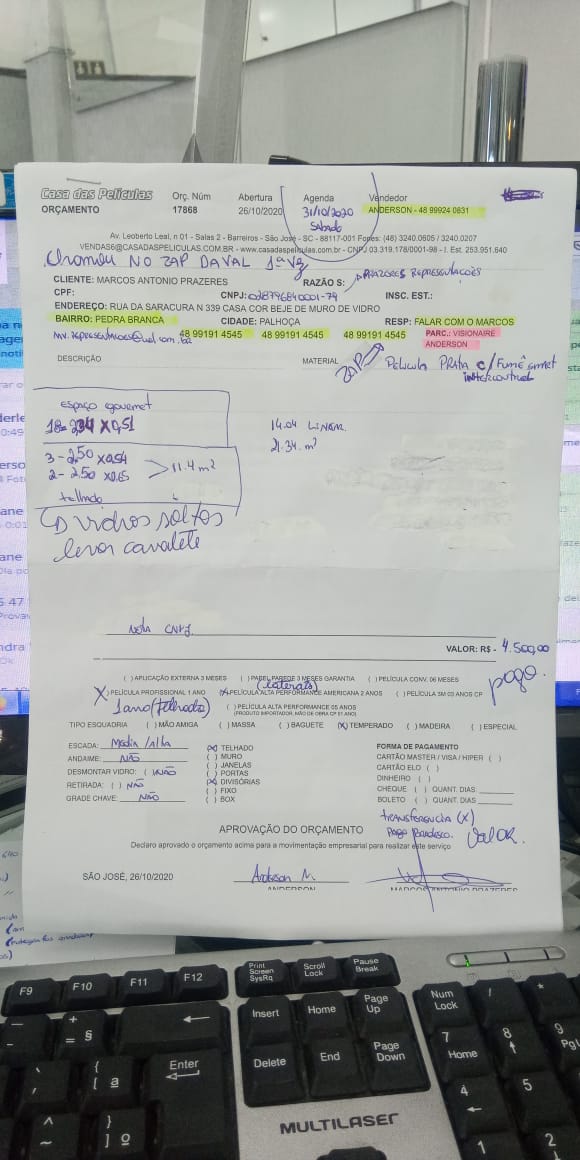 Casa das Películas
ORÇAMENTO
Orç. Núm
17868
Abertura
26/10/2020
Agenda
31/10/2020
Sabado
Vendedor
ANDERSON - 48 99924 0631
Av. Leoberto Leal, n 01 - Salas 2 - Barreiros - São José - SC - 88117-001 Fones: (48) 3240.0605 / 3240.0207
VENDAS6@CASADASPELICULAS.COM.BR - www.casadaspeliculas.com.br - CNPJ 03.319.178/0001-98 - I. Est. 253.951.640
Chamou NO ZAP DAVAL 1ª Vz
CLIENTE: MARCOS ANTONIO PRAZERES RAZÃO S: PRAZERES Representações
CPF: CNPJ: INSC. EST.:
ENDEREÇO: RUA DA SARACURA N 339 CASA COR BEJE DE MURO DE VIDRO
BAIRRO: PEDRA BRANCA CIDADE: PALHOÇA RESP: FALAR COM O MARCOS
48 99191 4545 48 99191 4545 48 99191 4545 PARC.: VISIONAIRE
ANDERSON
DESCRIÇÃO MATERIAL Película PRATA c/ Fumê
espaço gourmet
18 - 234 x 0,51
14.04 LINEAR
21.34 m²
3 - 2.50 x 0,54
2 - 2.50 x 0,65
> 11.4 m²
telhado
vidros soltos
levar cavalete
Nota CNPJ
VALOR: R$ - 4.500,00
pago.
( ) APLICAÇÃO EXTERNA 3 MESES ( ) PAPEL PAREDE 3 MESES GARANTIA ( ) PELÍCULA CONV. 06 MESES
(laterais)
(X) PELÍCULA PROFISSIONAL 1 ANO (X) PELÍCULA ALTA PERFORMANCE AMERICANA 2 ANOS ( ) PELÍCULA 3M 03 ANOS CP
1 ano (telhado)
( ) PELÍCULA ALTA PERFORMANCE 05 ANOS
(PRODUTO IMPORTADOR, MÃO DE OBRA CP 01 ANO)
TIPO ESQUADRIA ( ) MÃO AMIGA ( ) MASSA ( ) BAGUETE (X) TEMPERADO ( ) MADEIRA ( ) ESPECIAL
ESCADA: Media / Alta
ANDAIME: NÃO
DESMONTAR VIDRO: ( ) NÃO
RETIRADA: ( ) NÃO
GRADE CHAVE: NÃO
(X) TELHADO
( ) MURO
( ) JANELAS
( ) PORTAS
(X) DIVISÓRIAS
( ) FIXO
( ) BOX
FORMA DE PAGAMENTO
CARTÃO MASTER / VISA / HIPER ( )
CARTÃO ELO ( )
DINHEIRO ( )
CHEQUE ( ) QUANT. DIAS
BOLETO ( ) QUANT. DIAS
TRANSFERENCIA (X)
Pago Bradesco. Valor.
APROVAÇÃO DO ORÇAMENTO
Declaro aprovado o orçamento acima para a movimentação empresarial para realizar este serviço
SÃO JOSÉ, 26/10/2020
Anderson M.
ANDERSON
MARCOS ANTONIO PRAZERES
F9 F10 F11 F12
Print Screen SysRq
Scroll Lock
Pause Break
Insert Home Page Up
Num Lock / *
Delete End Page Down
7 Home 8 9 PgU
Enter
4 5
1 2
MULTILASER